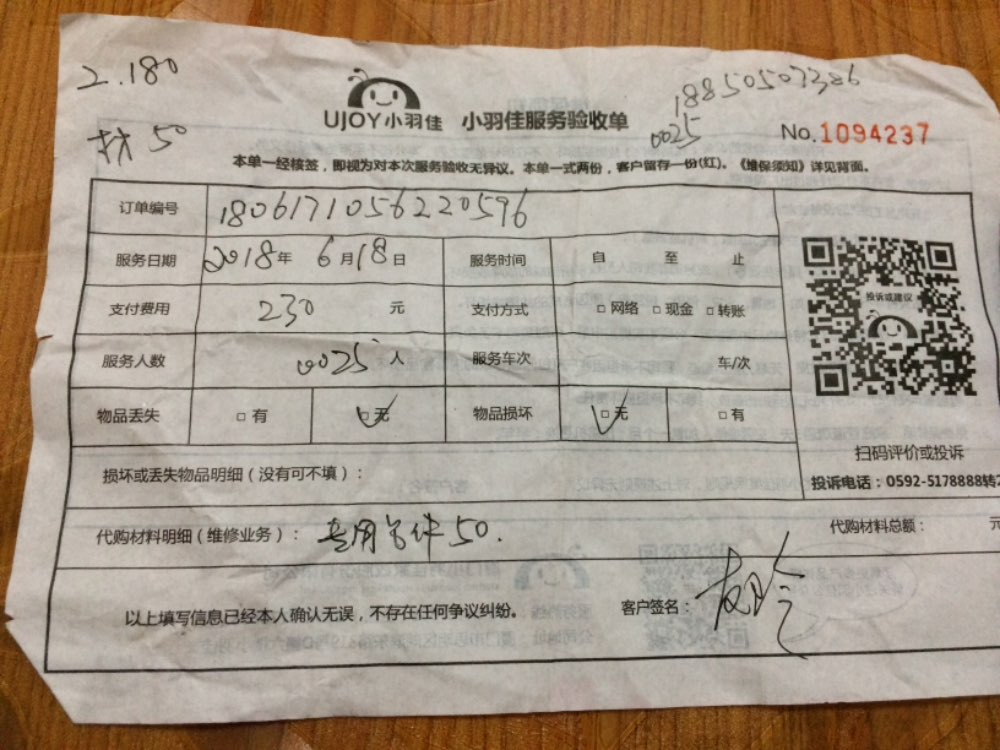 2.180
材 50
UJOY小羽佳 小羽佳服务验收单
18850507386
0025
No.1094237
本单一经核签，即视为对本次服务验收无异议。本单一式两份，客户留存一份(红)。《维保须知》详见背面。
订单编号 180617105622059​6
服务日期 2018年 6月18日 服务时间 自 至 止
支付费用 230 元 支付方式 □网络 □现金 □转账
服务人数 0025 人 服务车次 车/次
物品丢失 □有 □无 物品损坏 □无 □有
投诉或建议
扫码评价或投诉
投诉电话：0592-5178888转2
损坏或丢失物品明细（没有可不填）：
代购材料明细（维修业务）： 专用配件50.
代购材料总额： 元
以上填写信息已经本人确认无误，不存在任何争议纠纷。
客户签名：